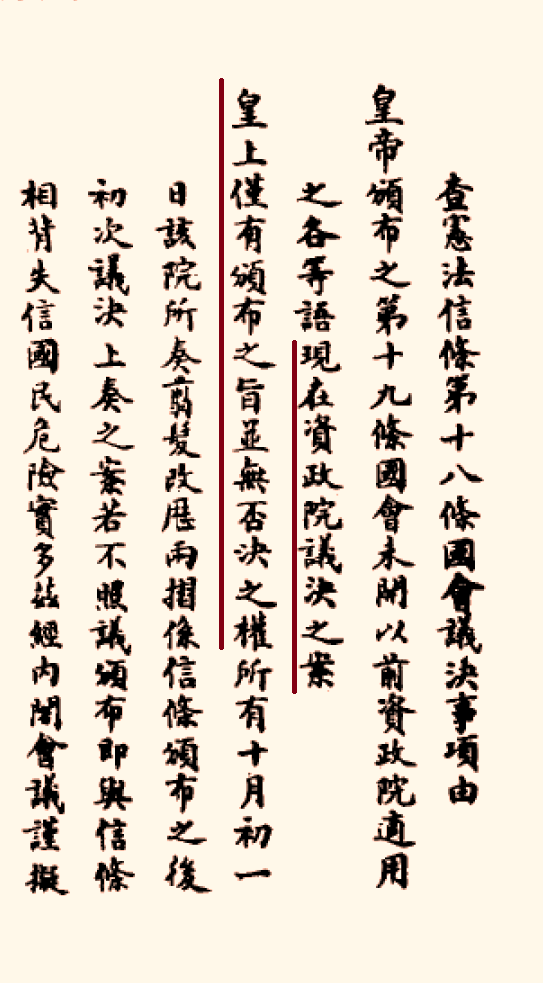 查憲法信條第十八條國會議決事項由
皇帝頒布之第十九條國會未開以前資政院適用
之各等語現在資政院議決之案
皇上僅有頒布之旨並無否決之權所有十月初一
日該院所奏翦髮改歷兩摺係信條頒布之後
初次議決上奏之案若不照議頒布即與信條
相背失信國民危險實多茲經內閣會議謹擬